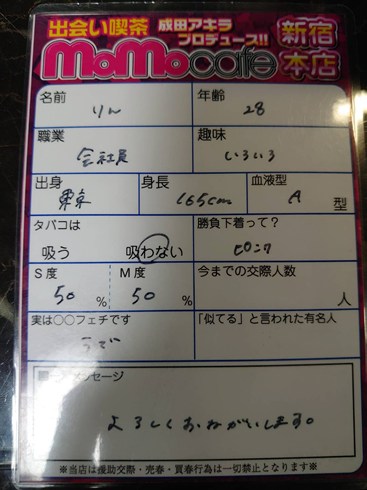 出会い喫茶 成田アキラ
プロデュース!!
MoMocafe 新宿本店
名前 りん 年齢 28
職業 会社員 趣味 いろいろ
出身 東京 身長 165cm 血液型 A 型
タバコは 吸う 吸わない 勝負下着って? ピンク
S度 50 % M度 50 % 今までの交際人数 人
実は○○フェチです うで 「似てる」と言われた有名人
メッセージ
よろしくおねがいします。
※当店は援助交際・売春・買春行為は一切禁止となります※